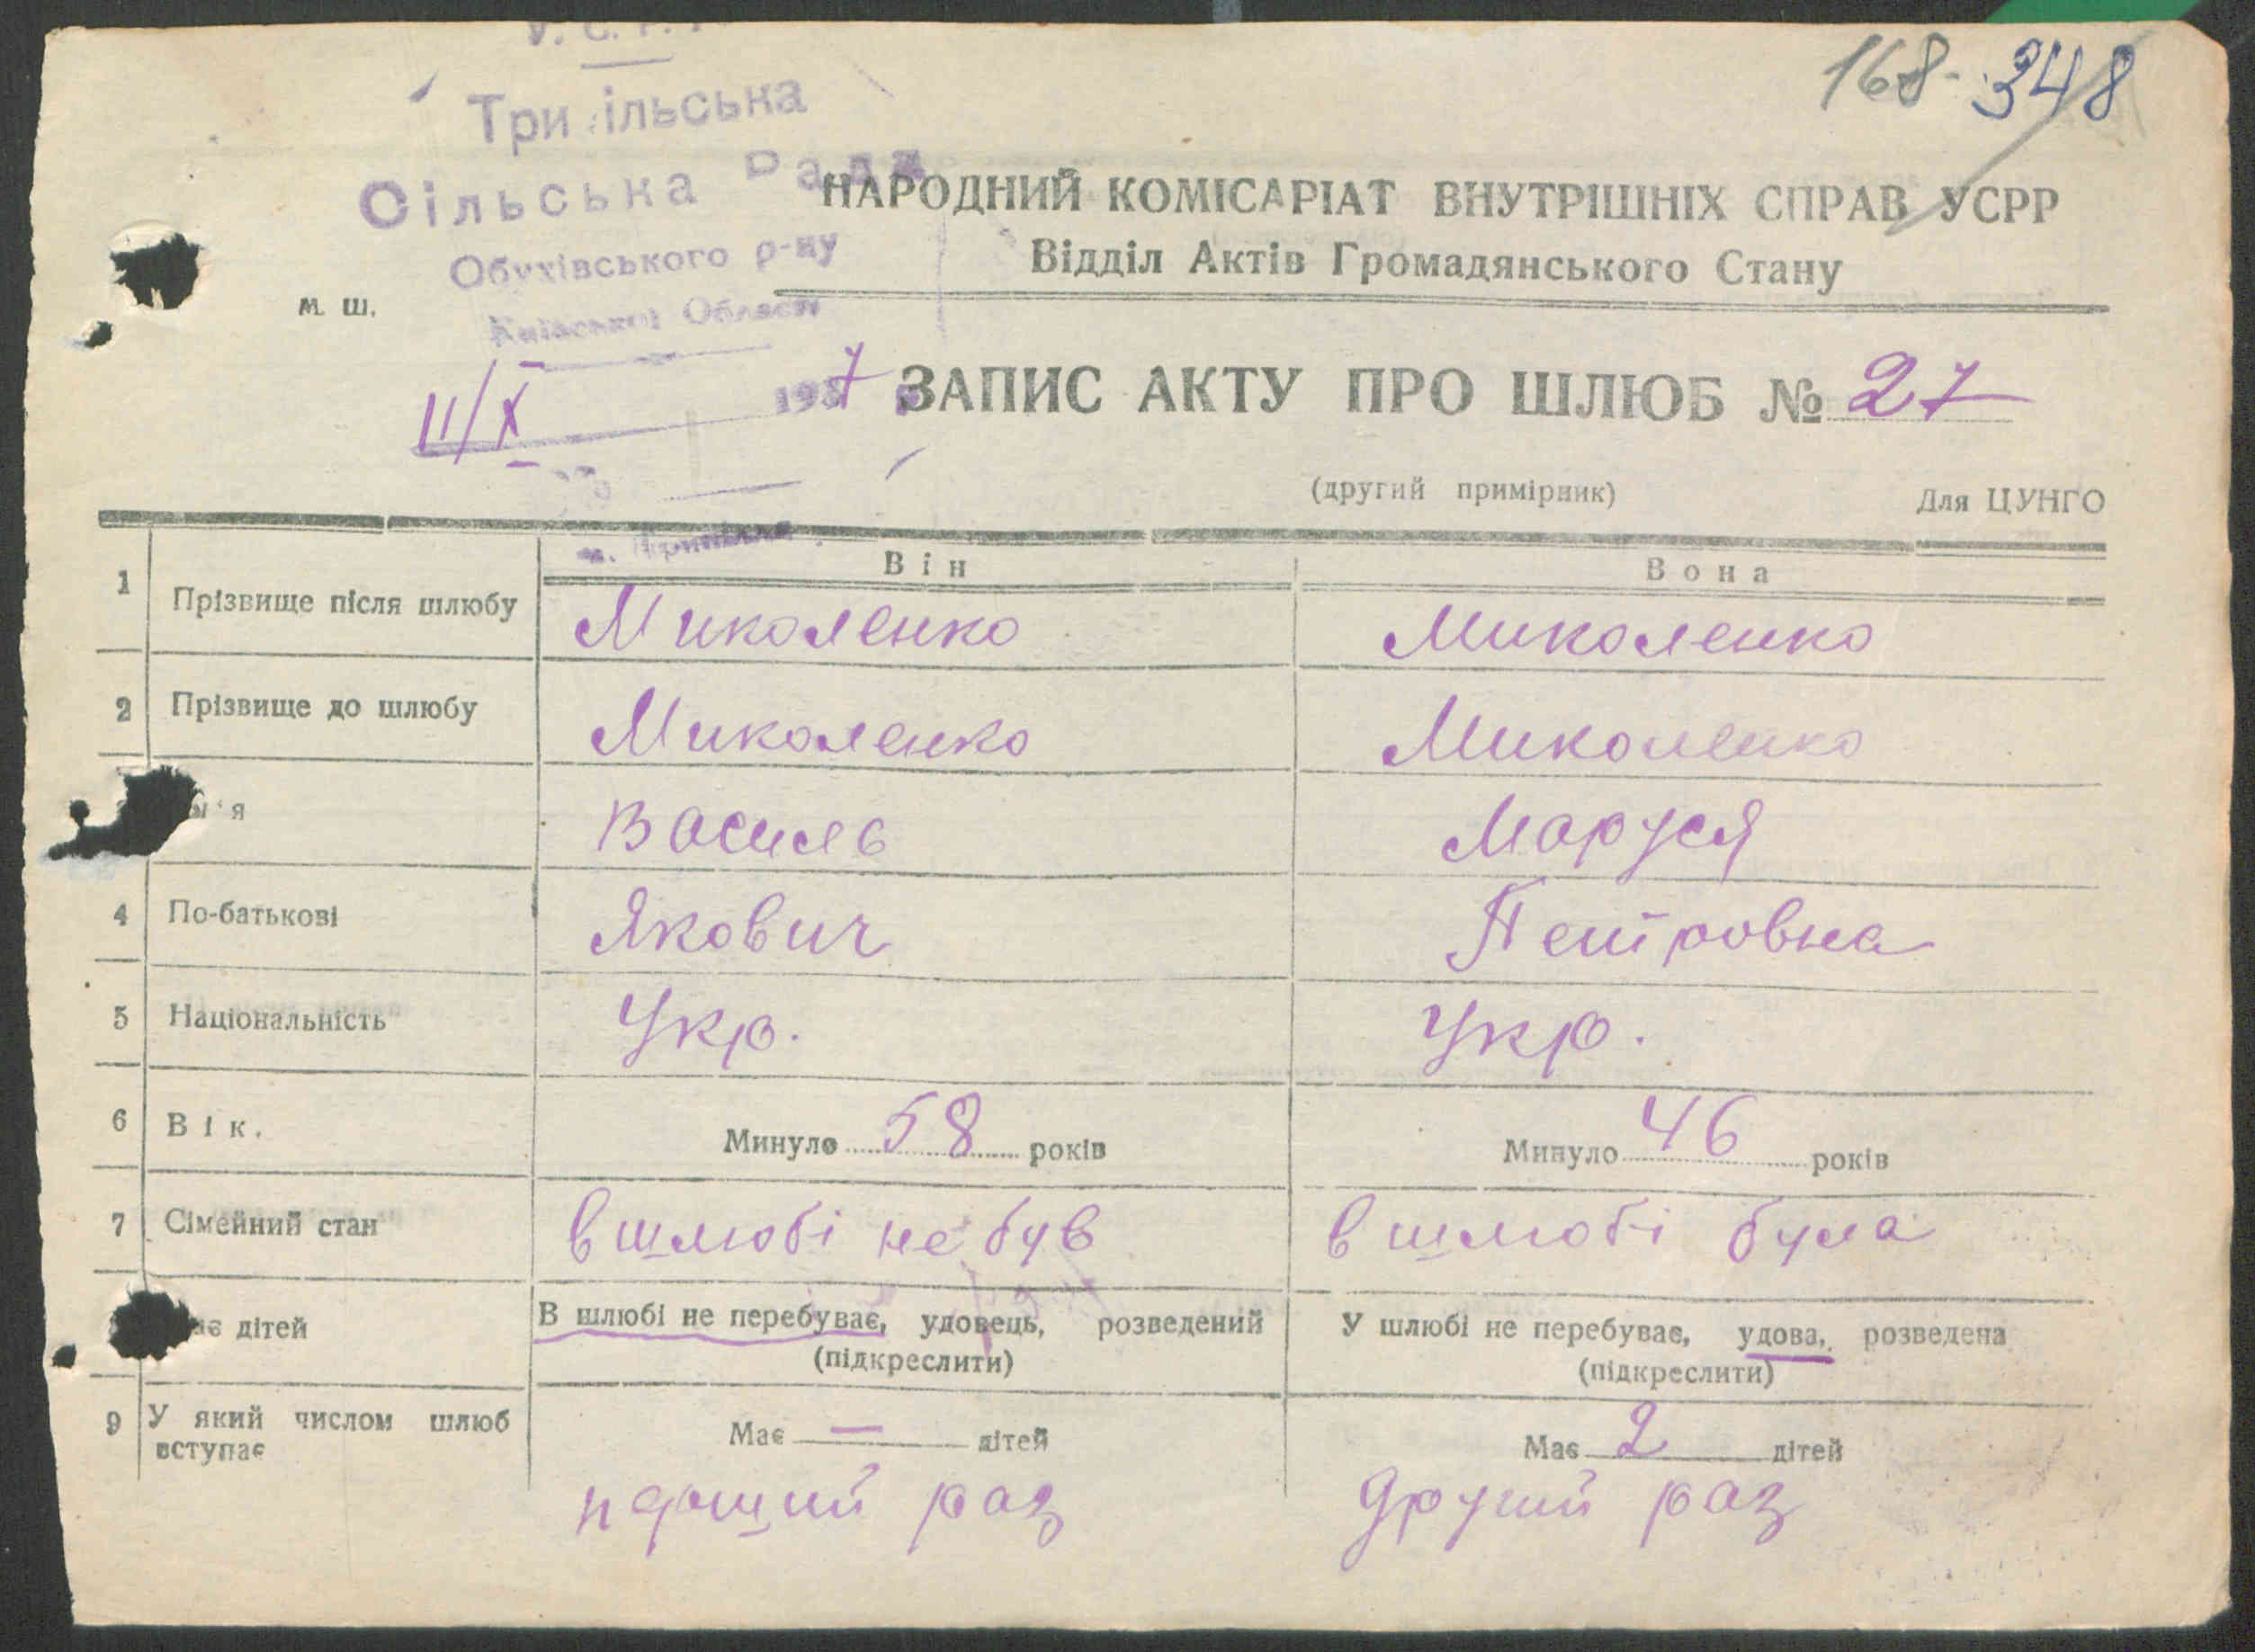 У. С. Р. Р.
168-348
Трипільська
Сільська Рада
НАРОДНИЙ КОМІСАРІАТ ВНУТРІШНІХ СПРАВ УСРР
Обухівського р-ну
Відділ Актів Громадянського Стану
м. ш.
Київської Области
11/X 1937 ЗАПИС АКТУ ПРО ШЛЮБ № 27
(другий примірник) Для ЦУНГО
Він Вона
1 Прізвище після шлюбу Миколенко Миколенко
2 Прізвище до шлюбу Миколенко Миколенко
м'я Василь Маруся
4 По-батькові Якович Петровна
5 Національність Укр. Укр.
6 Вік. Минуло 58 років Минуло 46 років
7 Сімейний стан в шлюбі не був в шлюбі була
ає дітей В шлюбі не перебуває, удовець, розведений У шлюбі не перебуває, удова, розведена
(підкреслити) (підкреслити)
9 У який числом шлюб вступає Має — дітей Має 2 дітей
перший раз другий раз